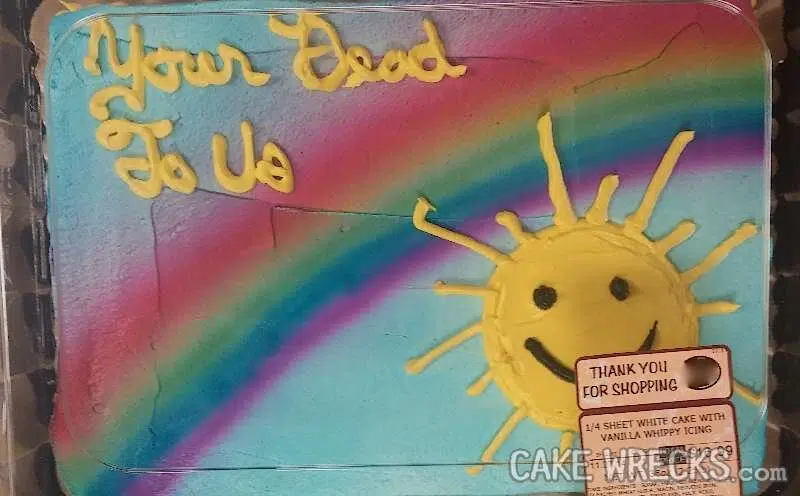 Your Dead
To Us
THANK YOU
FOR SHOPPING
1/4 SHEET WHITE CAKE WITH
VANILLA WHIPPY ICING
CAKE WRECKS.com